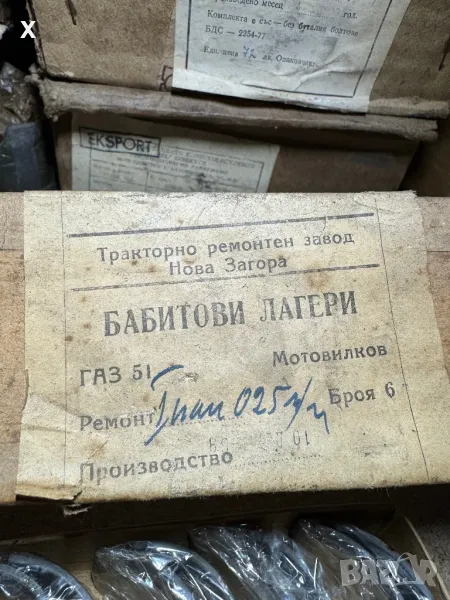 X
месец гол.
Комплекта е със — без бутални болтове
БДС — 2254-77
Ед. цена 72 лв. Опаковчик
EKSPORT
Тракторно ремонтен завод
Нова Загора
БАБИТОВИ ЛАГЕРИ
ГАЗ 51 Мотовилков
Ремонт 025 Броя 6
Производство
BAZAR